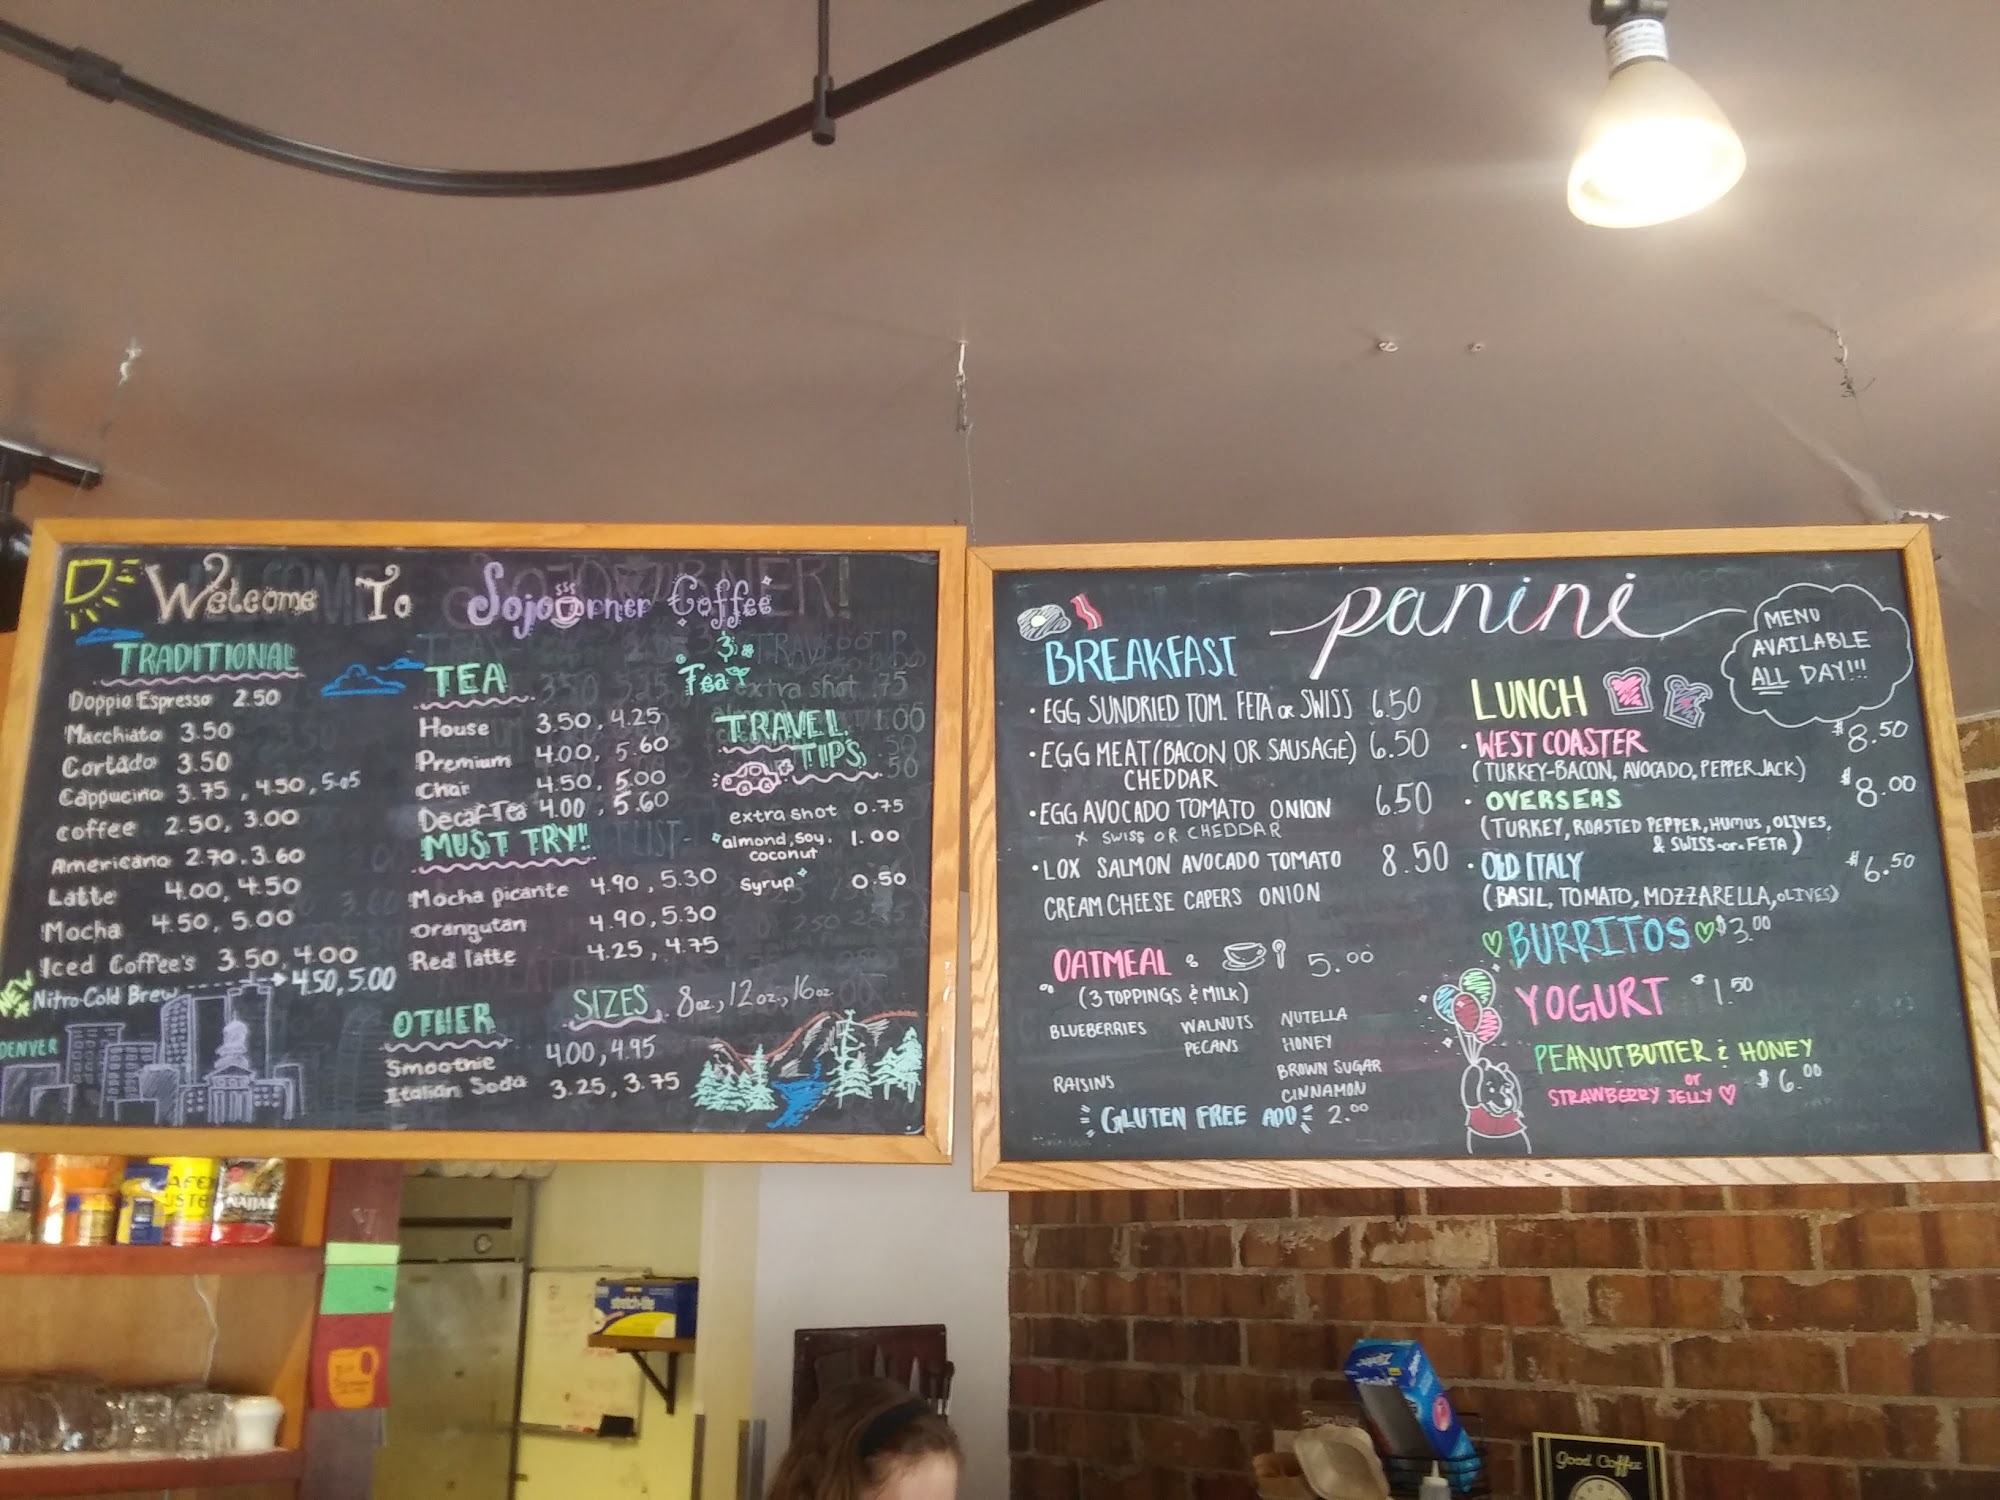 Welcome To Sojourner Coffee
TRADITIONAL
Doppio Espresso 2.50
Macchiato 3.50
Cortado 3.50
Cappucino 3.75, 4.50, 5.05
coffee 2.50, 3.00
Americano 2.70, 3.60
Latte 4.00, 4.50
Mocha 4.50, 5.00
Iced Coffee's 3.50, 4.00
NEW
Nitro Cold Brew 4.50, 5.00
DENVER
TEA
House 3.50, 4.25
Premium 4.00, 5.60
Chai 4.50, 5.00
Decaf Tea 4.00, 5.60
MUST TRY!!
Mocha picante 4.90, 5.30
Orangutan 4.90, 5.30
Red latte 4.25, 4.75
OTHER
Smoothie 4.00, 4.95
Italian Soda 3.25, 3.75
SIZES 8oz, 12oz, 16oz
& Tea
TRAVEL
TIPS
extra shot 0.75
almond, soy, 1.00
coconut
Syrup 0.50
panini
MENU
AVAILABLE
ALL DAY!!!
BREAKFAST
• EGG SUNDRIED TOM. FETA OR SWISS 6.50
• EGG MEAT (BACON OR SAUSAGE) 6.50
CHEDDAR
• EGG AVOCADO TOMATO ONION 6.50
x SWISS OR CHEDDAR
• LOX SALMON AVOCADO TOMATO 8.50
CREAM CHEESE CAPERS ONION
OATMEAL 5.00
(3 TOPPINGS & MILK)
BLUEBERRIES WALNUTS NUTELLA
PECANS HONEY
RAISINS BROWN SUGAR
CINNAMON
GLUTEN FREE ADD 2.00
LUNCH
• WEST COASTER $8.50
(TURKEY-BACON, AVOCADO, PEPPER JACK)
• OVERSEAS $8.00
(TURKEY, ROASTED PEPPER, HUMUS, OLIVES,
& SWISS-OR-FETA)
• OLD ITALY $6.50
(BASIL, TOMATO, MOZZARELLA, OLIVES)
BURRITOS $3.00
YOGURT $1.50
PEANUT BUTTER & HONEY
or
STRAWBERRY JELLY $6.00
stretch-tite
Ziploc
Good Coffee